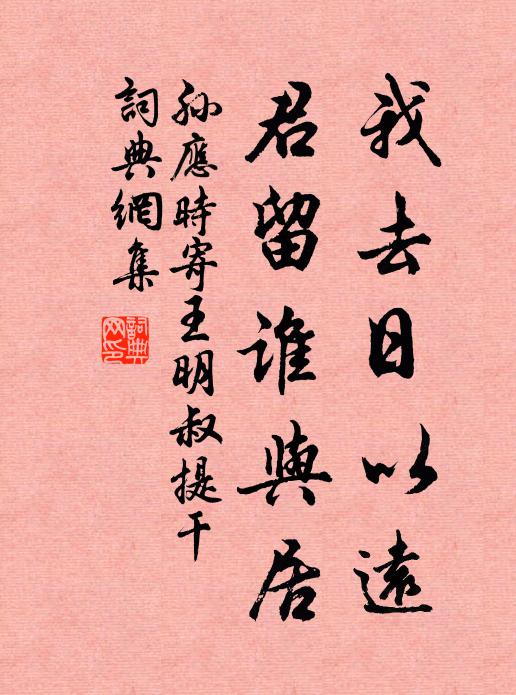 我去日以遠
君留誰與居
孫應時寄王明叔提干
詞典網集
詞典網印